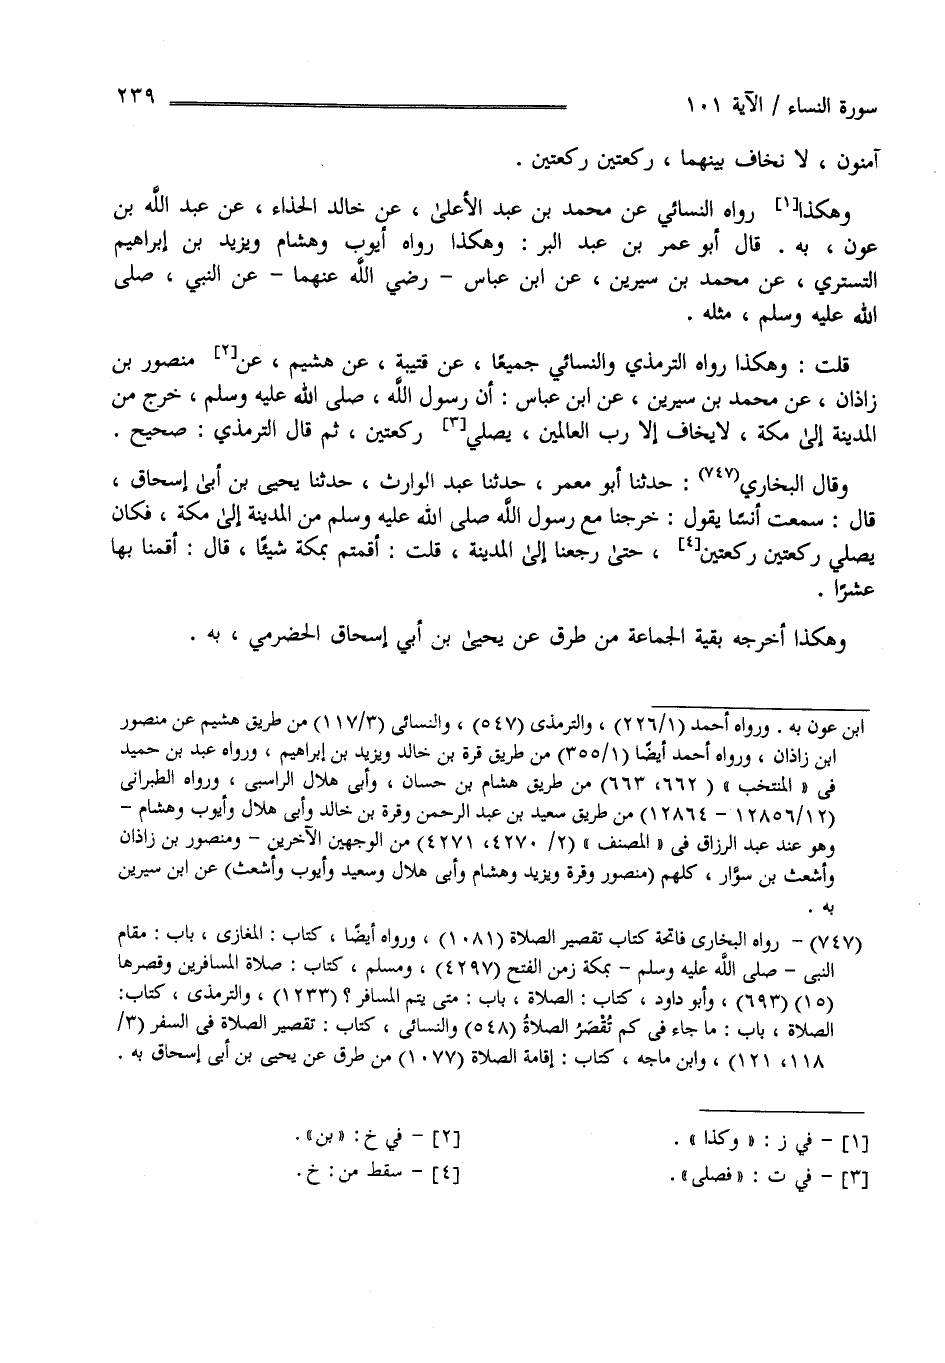 سورة النساء / الآية ١٠١
٢٣٩
آمنون ، لا نخاف بينهما ، ركعتين ركعتين .
وهكذا[١] رواه النسائي عن محمد بن عبد الأعلىٰ ، عن خالد الحذاء ، عن عبد اللَّه بن
عون ، به . قال أبو عمر بن عبد البر : وهكذا رواه أيوب وهشام ويزيد بن إبراهيم
التستري ، عن محمد بن سيرين ، عن ابن عباس – رضي اللَّه عنهما – عن النبي ، صلى
الله عليه وسلم ، مثله .
قلت : وهكذا رواه الترمذي والنسائي جميعًا ، عن قتيبة ، عن هشيم ، عن[٢] منصور بن
زاذان ، عن محمد بن سيرين ، عن ابن عباس : أن رسول اللَّه ، صلى الله عليه وسلم ، خرج من
المدينة إلىٰ مكة ، لايخاف إلا رب العالمين ، يصلي[٣] ركعتين ، ثم قال الترمذي : صحيح .
وقال البخاري(٧٤٧) : حدثنا أبو معمر ، حدثنا عبد الوارث ، حدثنا يحيى بن أبىٰ إسحاق ،
قال : سمعت أنسًا يقول : خرجنا مع رسول اللَّه صلى الله عليه وسلم من المدينة إلىٰ مكة ، فكان
يصلي ركعتين ركعتين[٤] ، حتىٰ رجعنا إلىٰ المدينة ، قلت : أقمتم بمكة شيئًا ، قال : أقمنا بها
عشرًا .
وهكذا أخرجه بقية الجماعة من طرق عن يحيىٰ بن أبي إسحاق الحضرمي ، به .
ابن عون به . ورواه أحمد (٢٢٦/١) ، والترمذى (٥٤٧) ، والنسائى (١١٧/٣) من طريق هشيم عن منصور
ابن زاذان ، ورواه أحمد أيضًا (٣٥٥/١) من طريق قرة بن خالد ويزيد بن إبراهيم ، ورواه عبد بن حميد
فى « المنتخب » ( ٦٦٢، ٦٦٣) من طريق هشام بن حسان ، وأبي هلال الراسبى ، ورواه الطبرانى
(١٢٨٥٦/١٢ – ١٢٨٦٤) من طريق سعيد بن عبد الرحمن وقرة بن خالد وأبى هلال وأيوب وهشام –
وهو عند عبد الرزاق فى « المصنف » (٢/ ٤٢٧٠، ٤٢٧١) من الوجهين الآخرين – ومنصور بن زاذان
وأشعث بن سؤّار ، كلهم (منصور وقرة ويزيد وهشام وأبى هلال وسعيد وأيوب وأشعث) عن ابن سيرين
به .
(٧٤٧) – رواه البخارى فاتحة كتاب تقصير الصلاة (١٠٨١) ، ورواه أيضًا ، كتاب : المغازى ، باب : مقام
النبى – صلى اللَّه عليه وسلم – بمكة زمن الفتح (٤٢٩٧) ، ومسلم ، كتاب : صلاة المسافرين وقصرها
(١٥) (٦٩٣) ، وأبو داود ، كتاب : الصلاة ، باب : متى يتم المسافر ؟ (١٢٣٣) ، والترمذى ، كتاب:
الصلاة ، باب : ما جاء فى كم تُقْصَرُ الصلاةُ (٥٤٨) والنسائى ، كتاب : تقصير الصلاة فى السفر (٣/
١١٨، ١٢١) ، وابن ماجه ، كتاب : إقامة الصلاة (١٠٧٧) من طرق عن يحيى بن أبى إسحاق به .
[١] – في ز : « وكذا » .
[٢] – في خ : «بن» .
[٣] – في ت : «فصلى» .
[٤] – سقط من: خ .